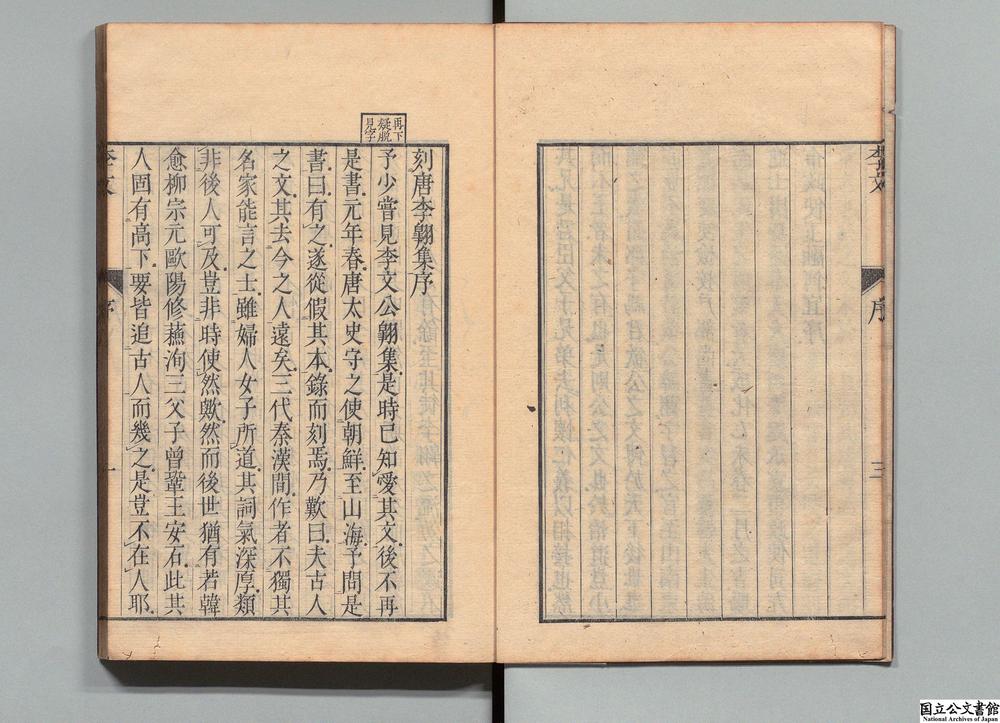 李文
序
三
再下
疑脫
見字
刻唐李翱集序
予少嘗見李文公翱集是時已知愛其文後不再
是書元年春唐太史守之使朝鮮至山海予問是
書曰有之遂從假其本錄而刻焉乃歎曰夫古人
之文其去今之人遠矣三代秦漢間作者不獨其
名家能言之士雖婦人女子所道其詞氣深厚類
非後人可及豈非時使然歟然而後世猶有若韓
愈柳宗元歐陽修蘇洵三父子曾鞏王安石此其
人固有高下要皆追古人而幾之是豈不在人耶
李文
序
一
国立公文書館
National Archives of Japan